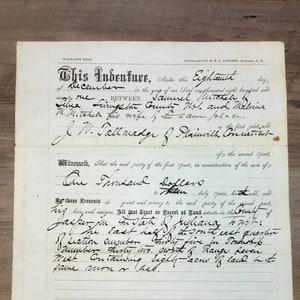 WARRANTY DEED.
This Indenture, Made this Eighteenth day
of December in the year of our Lord one thousand eight hundred and
one BETWEEN Samuel Mitchell of
Lima Livingston County N.Y. and
M. Mitchell his wife of the same place
of the first part, and
J. W. Tallmadge of Plainville Connecticut
of the second part,
Witnesseth, That the said party of the first part, in consideration of the sum of
One Thousand Dollars
to them duly paid, sold, and
By these Presents do grant and convey to the said party of the second part,
his heirs and assigns, All that Tract or Parcel of Land situate in County of
Jasper in State of Indiana
the East half of South east quarter
of Section number thirty five in Township
number thirty two north of Range Seven
West Containing Eighty acres of land be it the
same more or less.